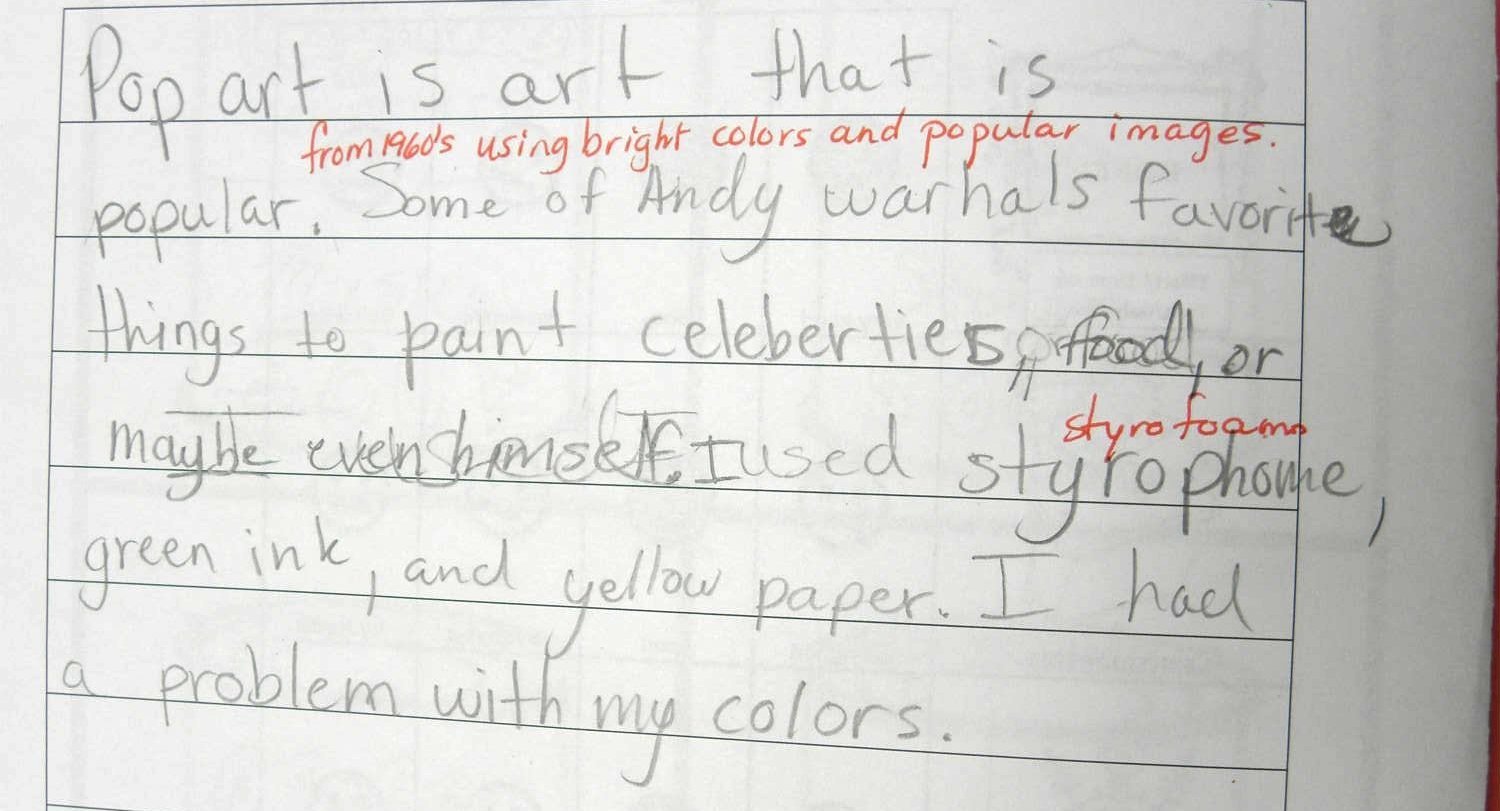 Pop art is art that is
from 1960's using bright colors and popular images.
popular. Some of Andy warhals favorite
things to paint celeberties, food, or
styrofoam
maybe even himself. I used styrophome,
green ink, and yellow paper. I had
a problem with my colors.